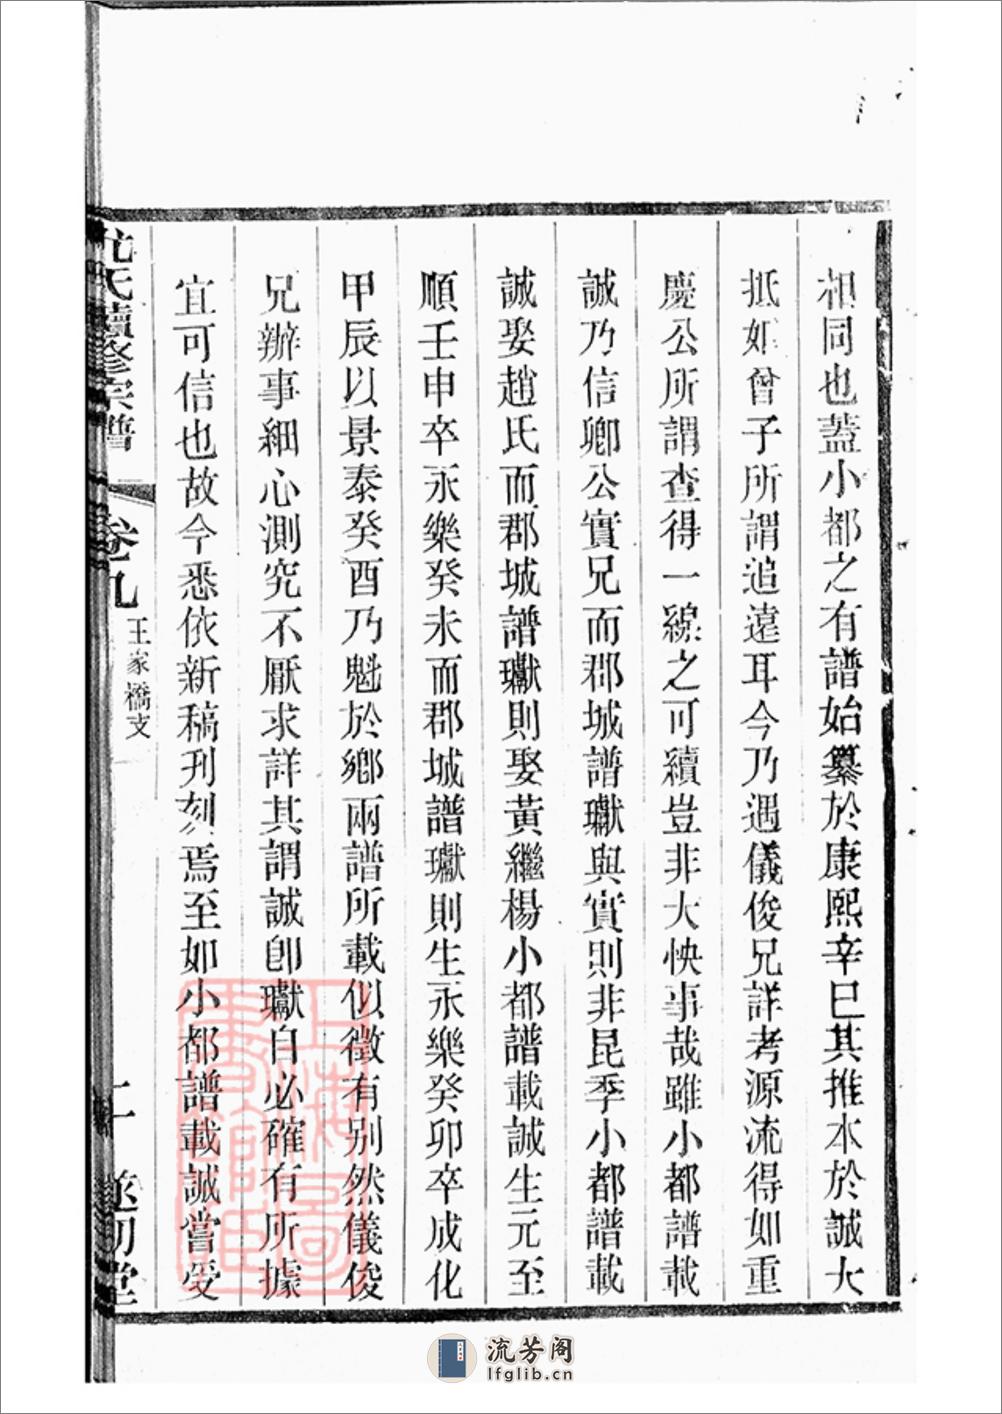 相同也蓋小都之有譜始纂於康熙辛巳其推本於誠大
抵如曾子所謂追遠耳今乃遇儀俊兄詳考源流得如重
慶公所謂查得一線之可續豈非大快事哉雖小都譜載
誠乃信卿公實兄而郡城譜瓛與實則非昆季小都譜載
誠娶趙氏而郡城譜瓛則娶黃繼楊小都譜載誠生元至
順壬申卒永樂癸未而郡城譜瓛則生永樂癸卯卒成化
甲辰以景泰癸酉乃魁於鄉兩譜所載似徵有別然儀俊
兄辦事細心測究不厭求詳其謂誠卽瓛自必確有所據
宜可信也故今悉依新稿刋刻焉至如小都譜載誠嘗受
尤氏續修宗譜 卷九 王家橋支 遂初堂
流芳阁
lfglib.cn